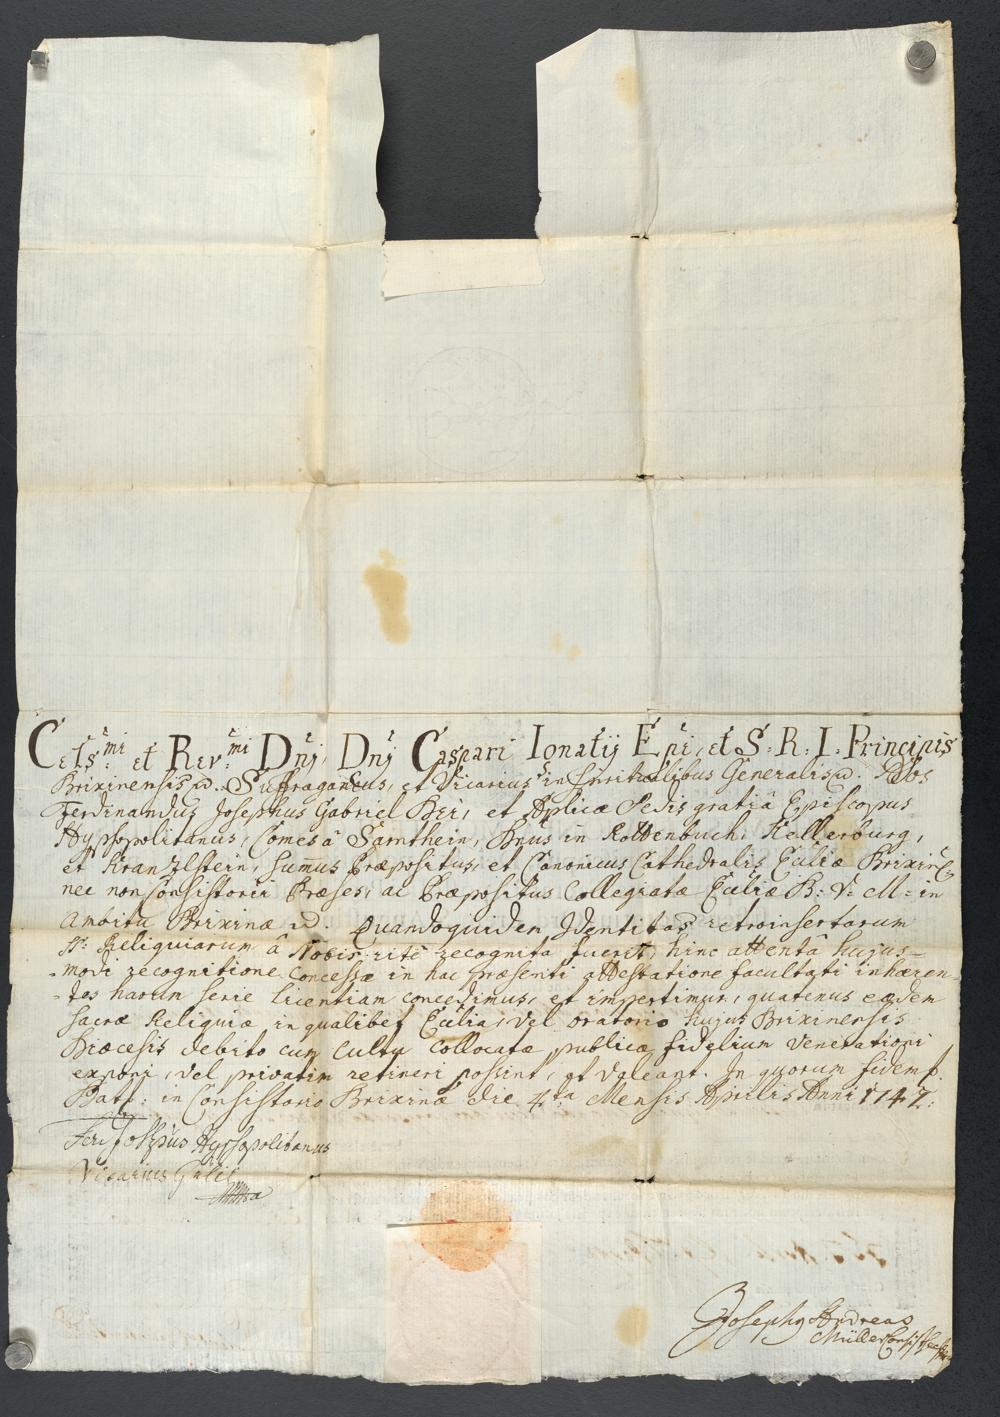 Cels.mi et Rev.mi Dnj, Dnj Caspari Ignatij Epi, et S. R. I. Principis
Brixinensis &. Suffraganeus, et Vicarius in Spiritualibus Generalis &. Nos
Ferdinandus Josephus Gabriel Dei, et Aplicæ Sedis gratiâ Episcopus
Hyssopolitanus, Comes â Sarnthein, Dnus in Rottenbuch, Kellerburg,
et Kranzlstein, Sumus Præpositus, et Canonicus Cathedralis Ecliæ Brixin:
nec non Consistorii Præses, ac Præpositus Collegiatæ Ecliæ B: V: M: in
Ambitu Brixinæ &. Quandoquidem Identitas retroinsertarum
SS: Reliquiarum â Nobis ritè recognita fuerit, hinc attentâ hujus=
=modi recognitione concessæ in hac præsenti attestatione facultati inhæren=
=tes harum serie licentiam concedimus, et impertimur, quatenus eædem
Sacræ Reliquiæ in qualibet Ecliâ, vel oratorio hujus Brixinensis
Diæcesis debito cum cultu collocatæ publicæ fidelium venerationi
exponi, vel privatim retineri possint, et valeant. In quorum fidem p.
Datt: in Consistorio Brixinæ die 4ta Mensis Aprilis Anni 1747.
Fer: Josephus Hyssopolitanus
Vicarius Gnlis
Josephus Andreas
Müller Consist: